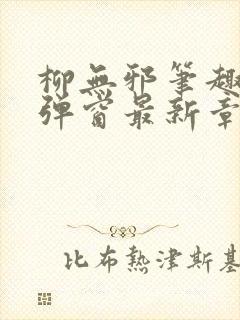 柳無邪筆趣
彈窗最新章
比布熱津斯基